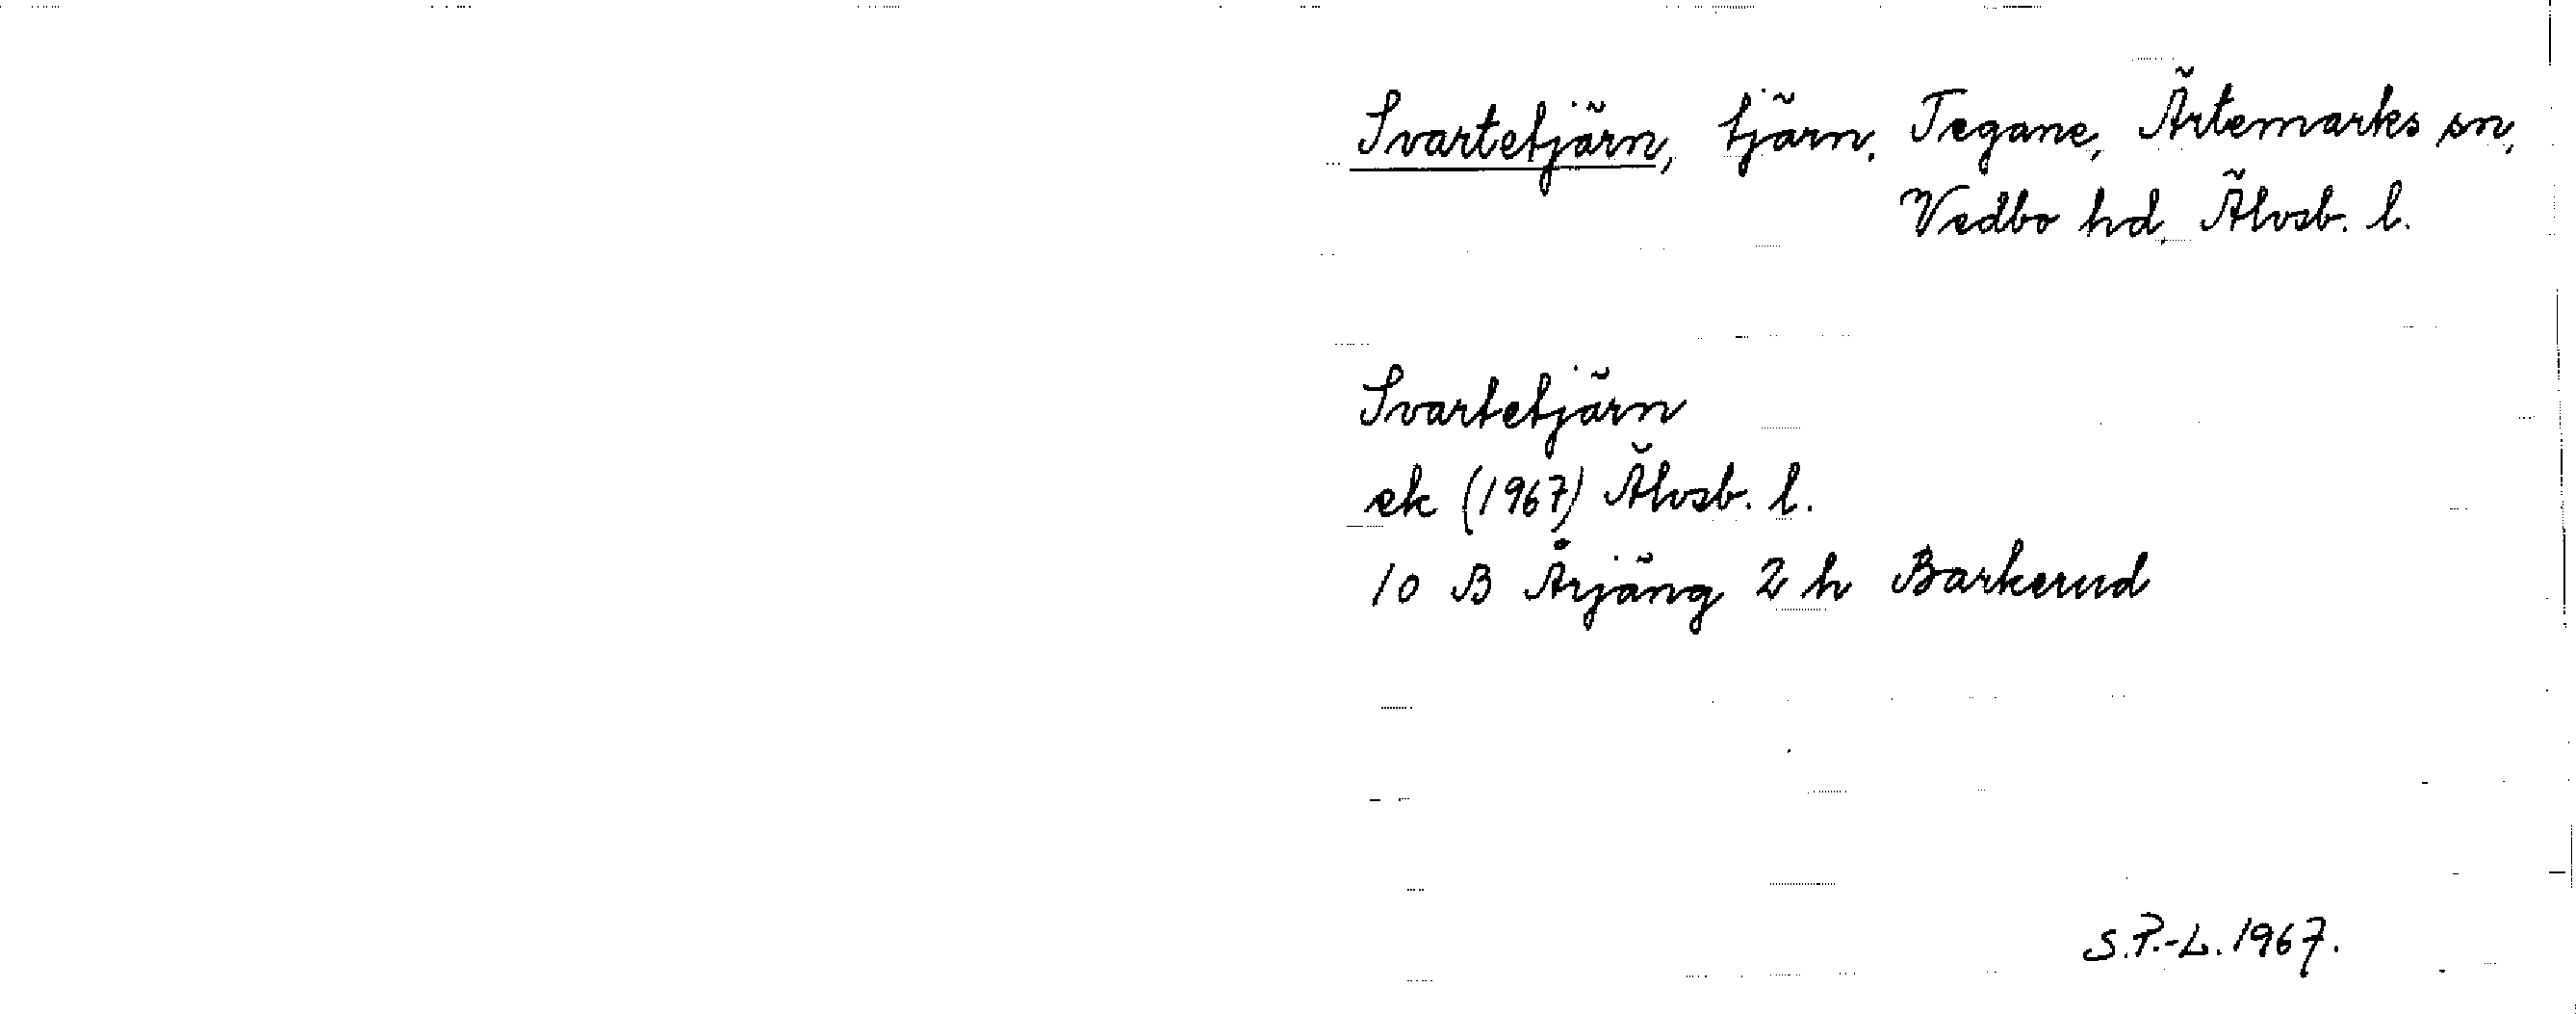 Svartetjärn, tjärn, Tegane, Ärtemarks sn,
Vedbo hd, Älvsb. l.
Svartetjärn
ek (1967) Älvsb. l.
10 B Årjäng 2 h Barkerud
S.P.-L. 1967.